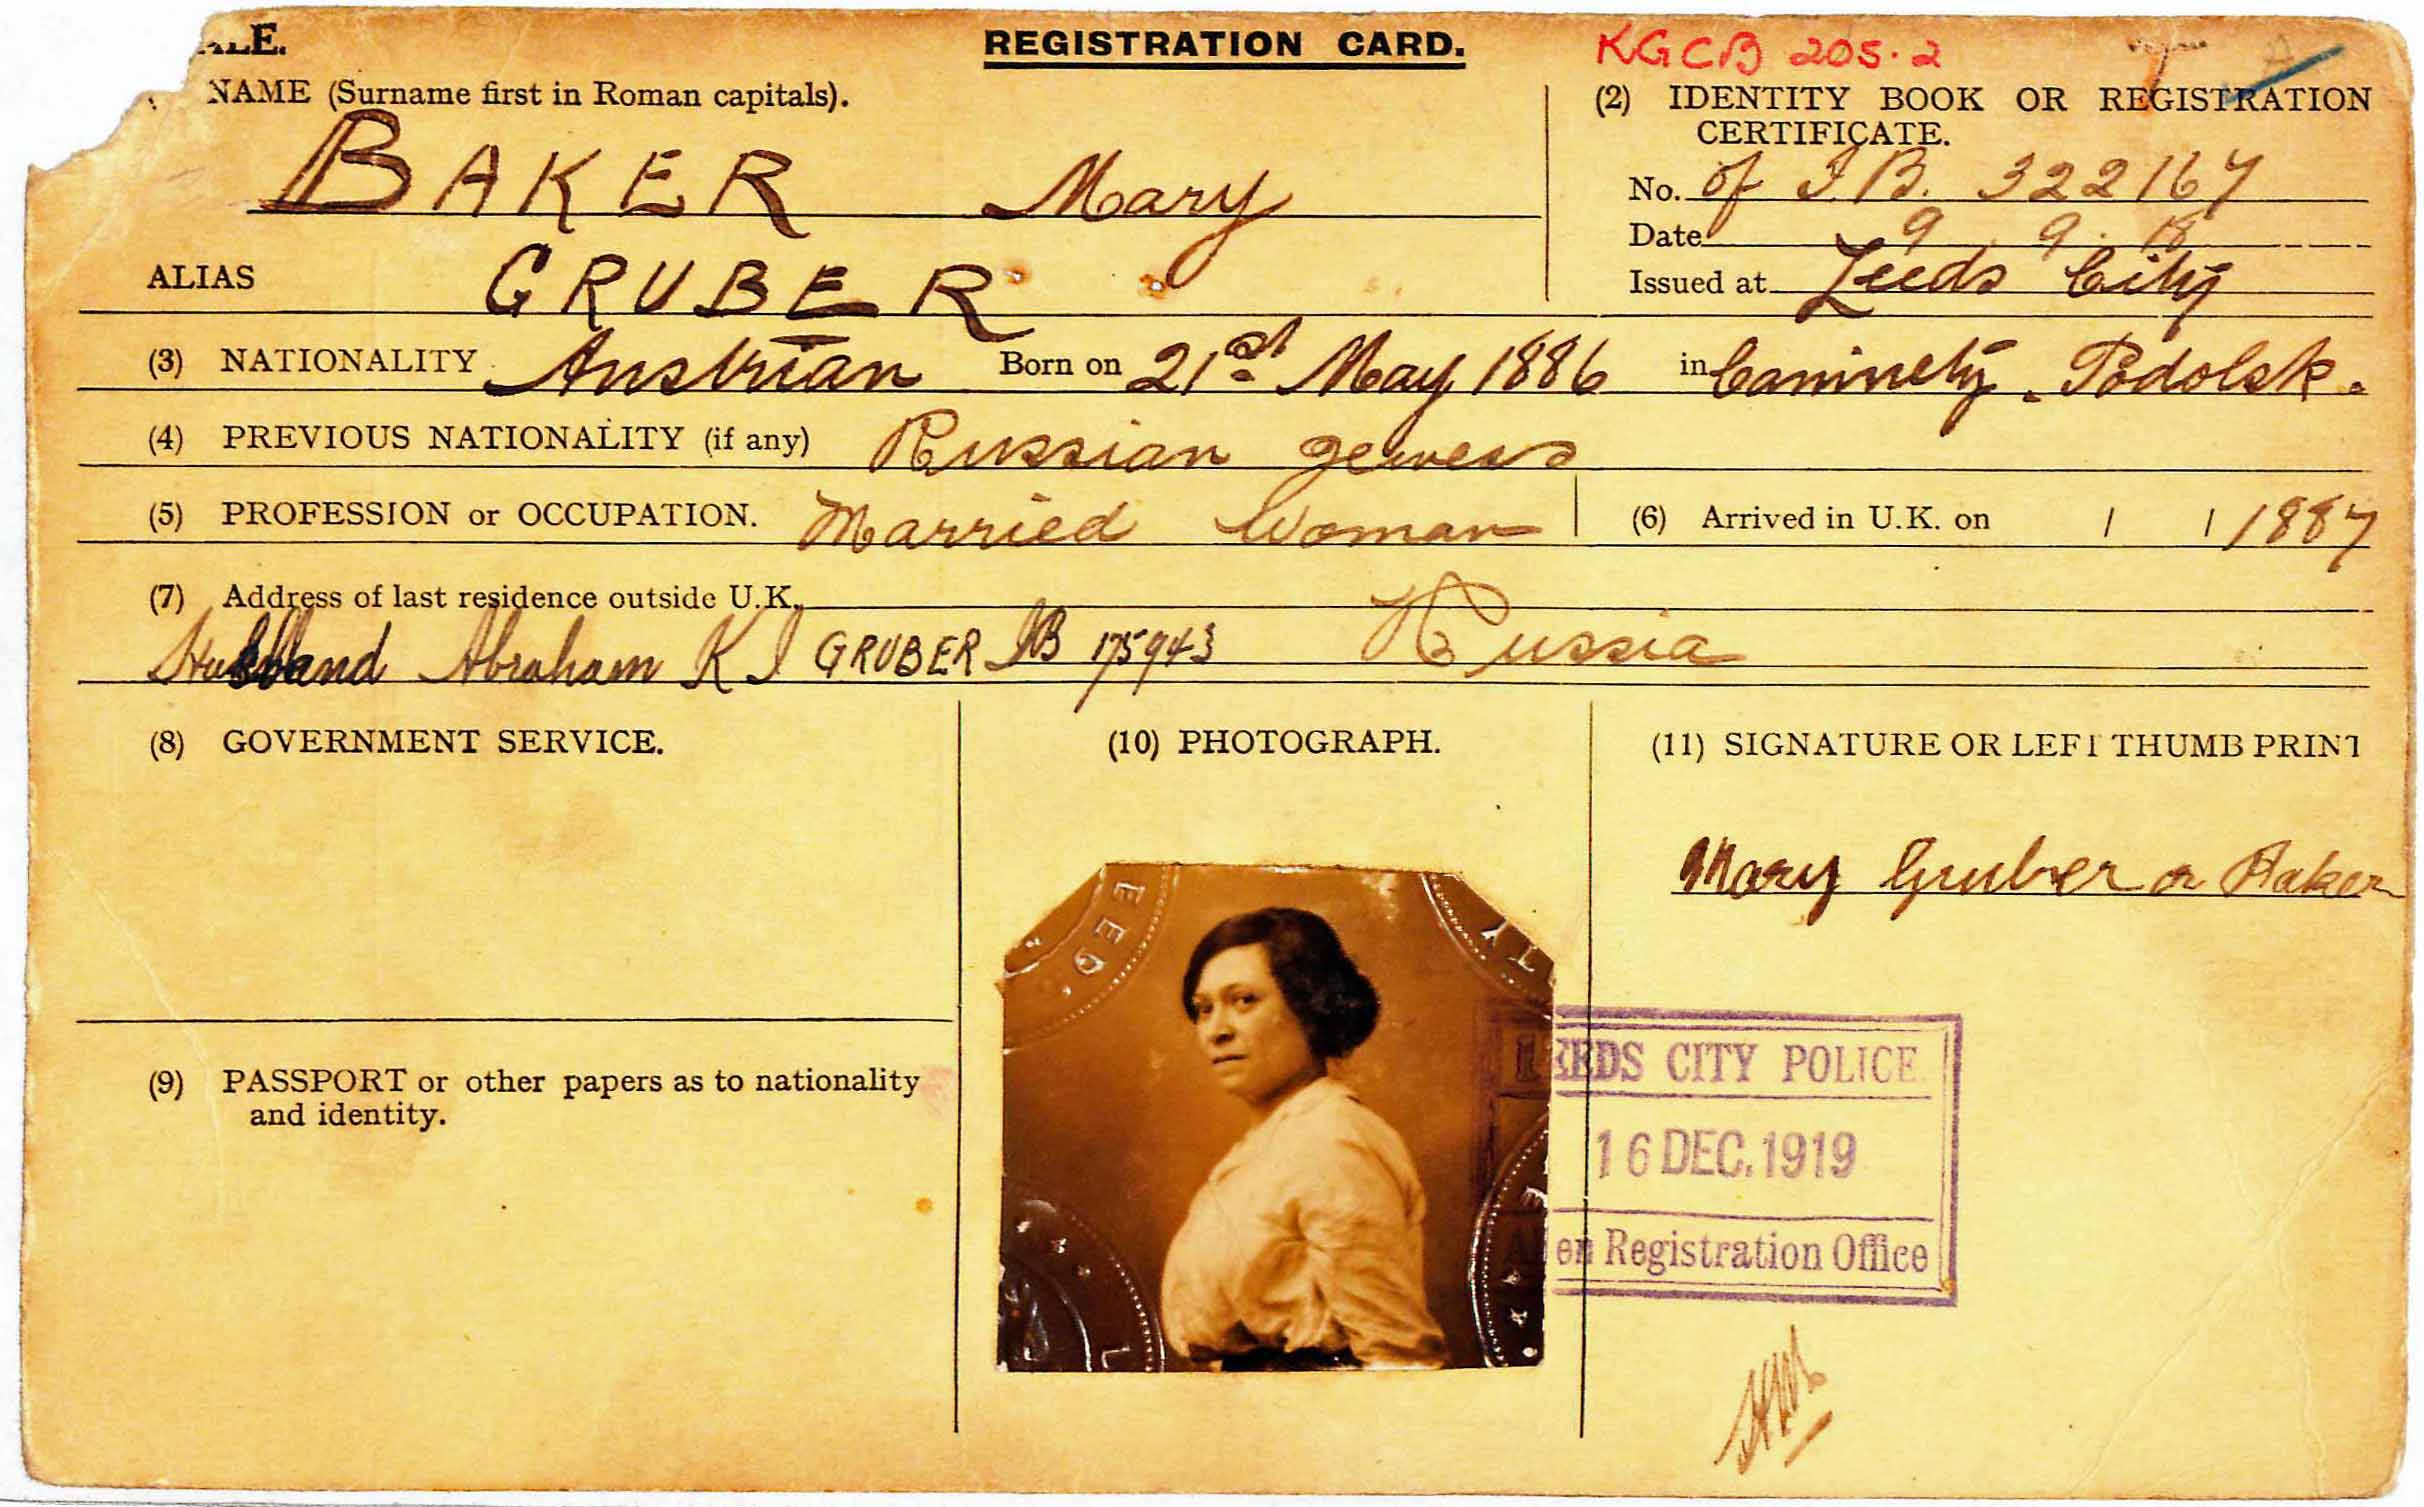 ALE.
REGISTRATION CARD.
KGCB 205.2
NAME (Surname first in Roman capitals).
BAKER Mary
ALIAS GRUBER
(2) IDENTITY BOOK OR REGISTRATION
CERTIFICATE.
No. of I B. 322167
Date 9 9. 18
Issued at Leeds City
(3) NATIONALITY Austrian Born on 21st May 1886 in Caminety. Podolsk.
(4) PREVIOUS NATIONALITY (if any) Russian Jewess
(5) PROFESSION or OCCUPATION. Married Woman
(6) Arrived in U.K. on / / 1887
(7) Address of last residence outside U.K.
Husband Abraham K I GRUBER IB 175943 Russia
(8) GOVERNMENT SERVICE.
(9) PASSPORT or other papers as to nationality
and identity.
(10) PHOTOGRAPH.
(11) SIGNATURE OR LEFT THUMB PRINT
Mary Gruber or Baker
LEEDS CITY POLICE
16 DEC. 1919
Alien Registration Office